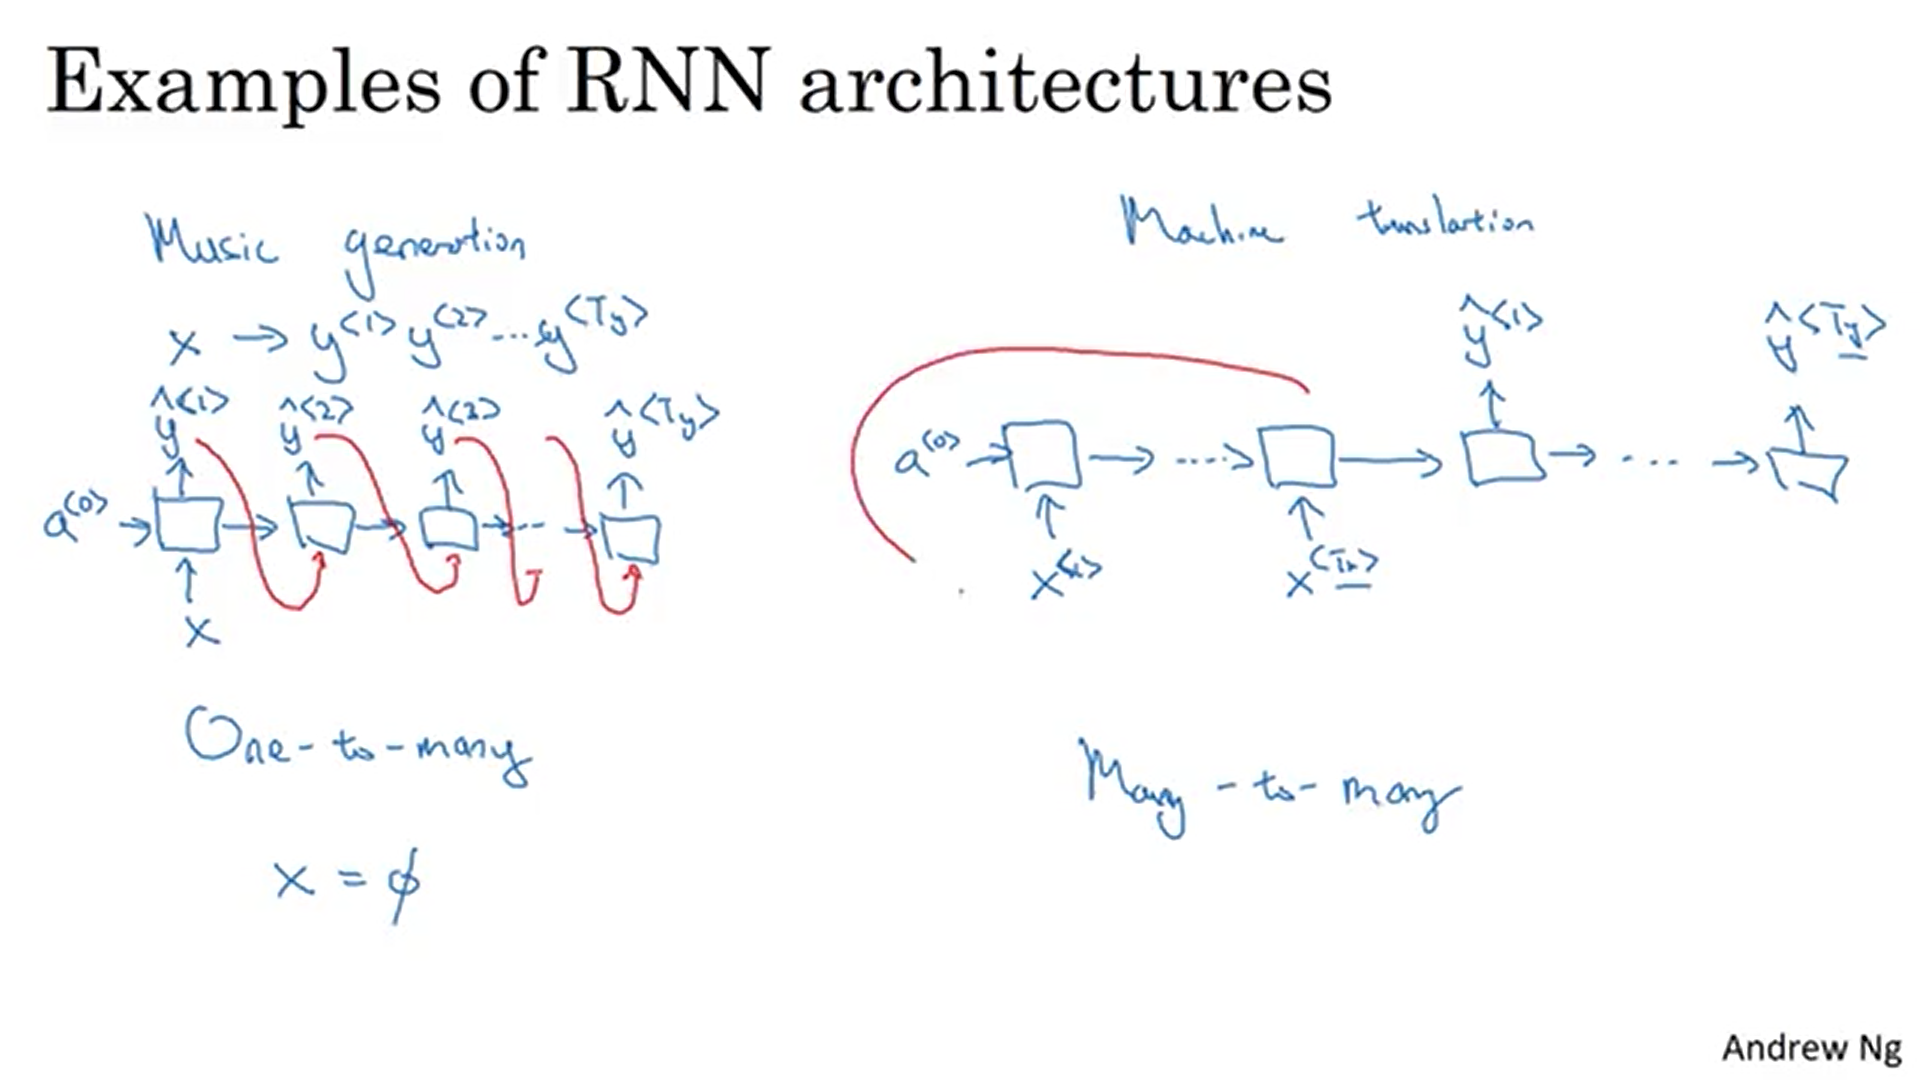 Examples of RNN architectures
Music generation
x → y<1> y<2> ... y<Ty>
ŷ<1> ŷ<2> ŷ<3> ŷ<Ty>
a<0>
x
One-to-many
x = ∅
Machine translation
ŷ<1> ŷ<Ty>
a<0>
x<1> x<Tx>
Many-to-many
Andrew Ng